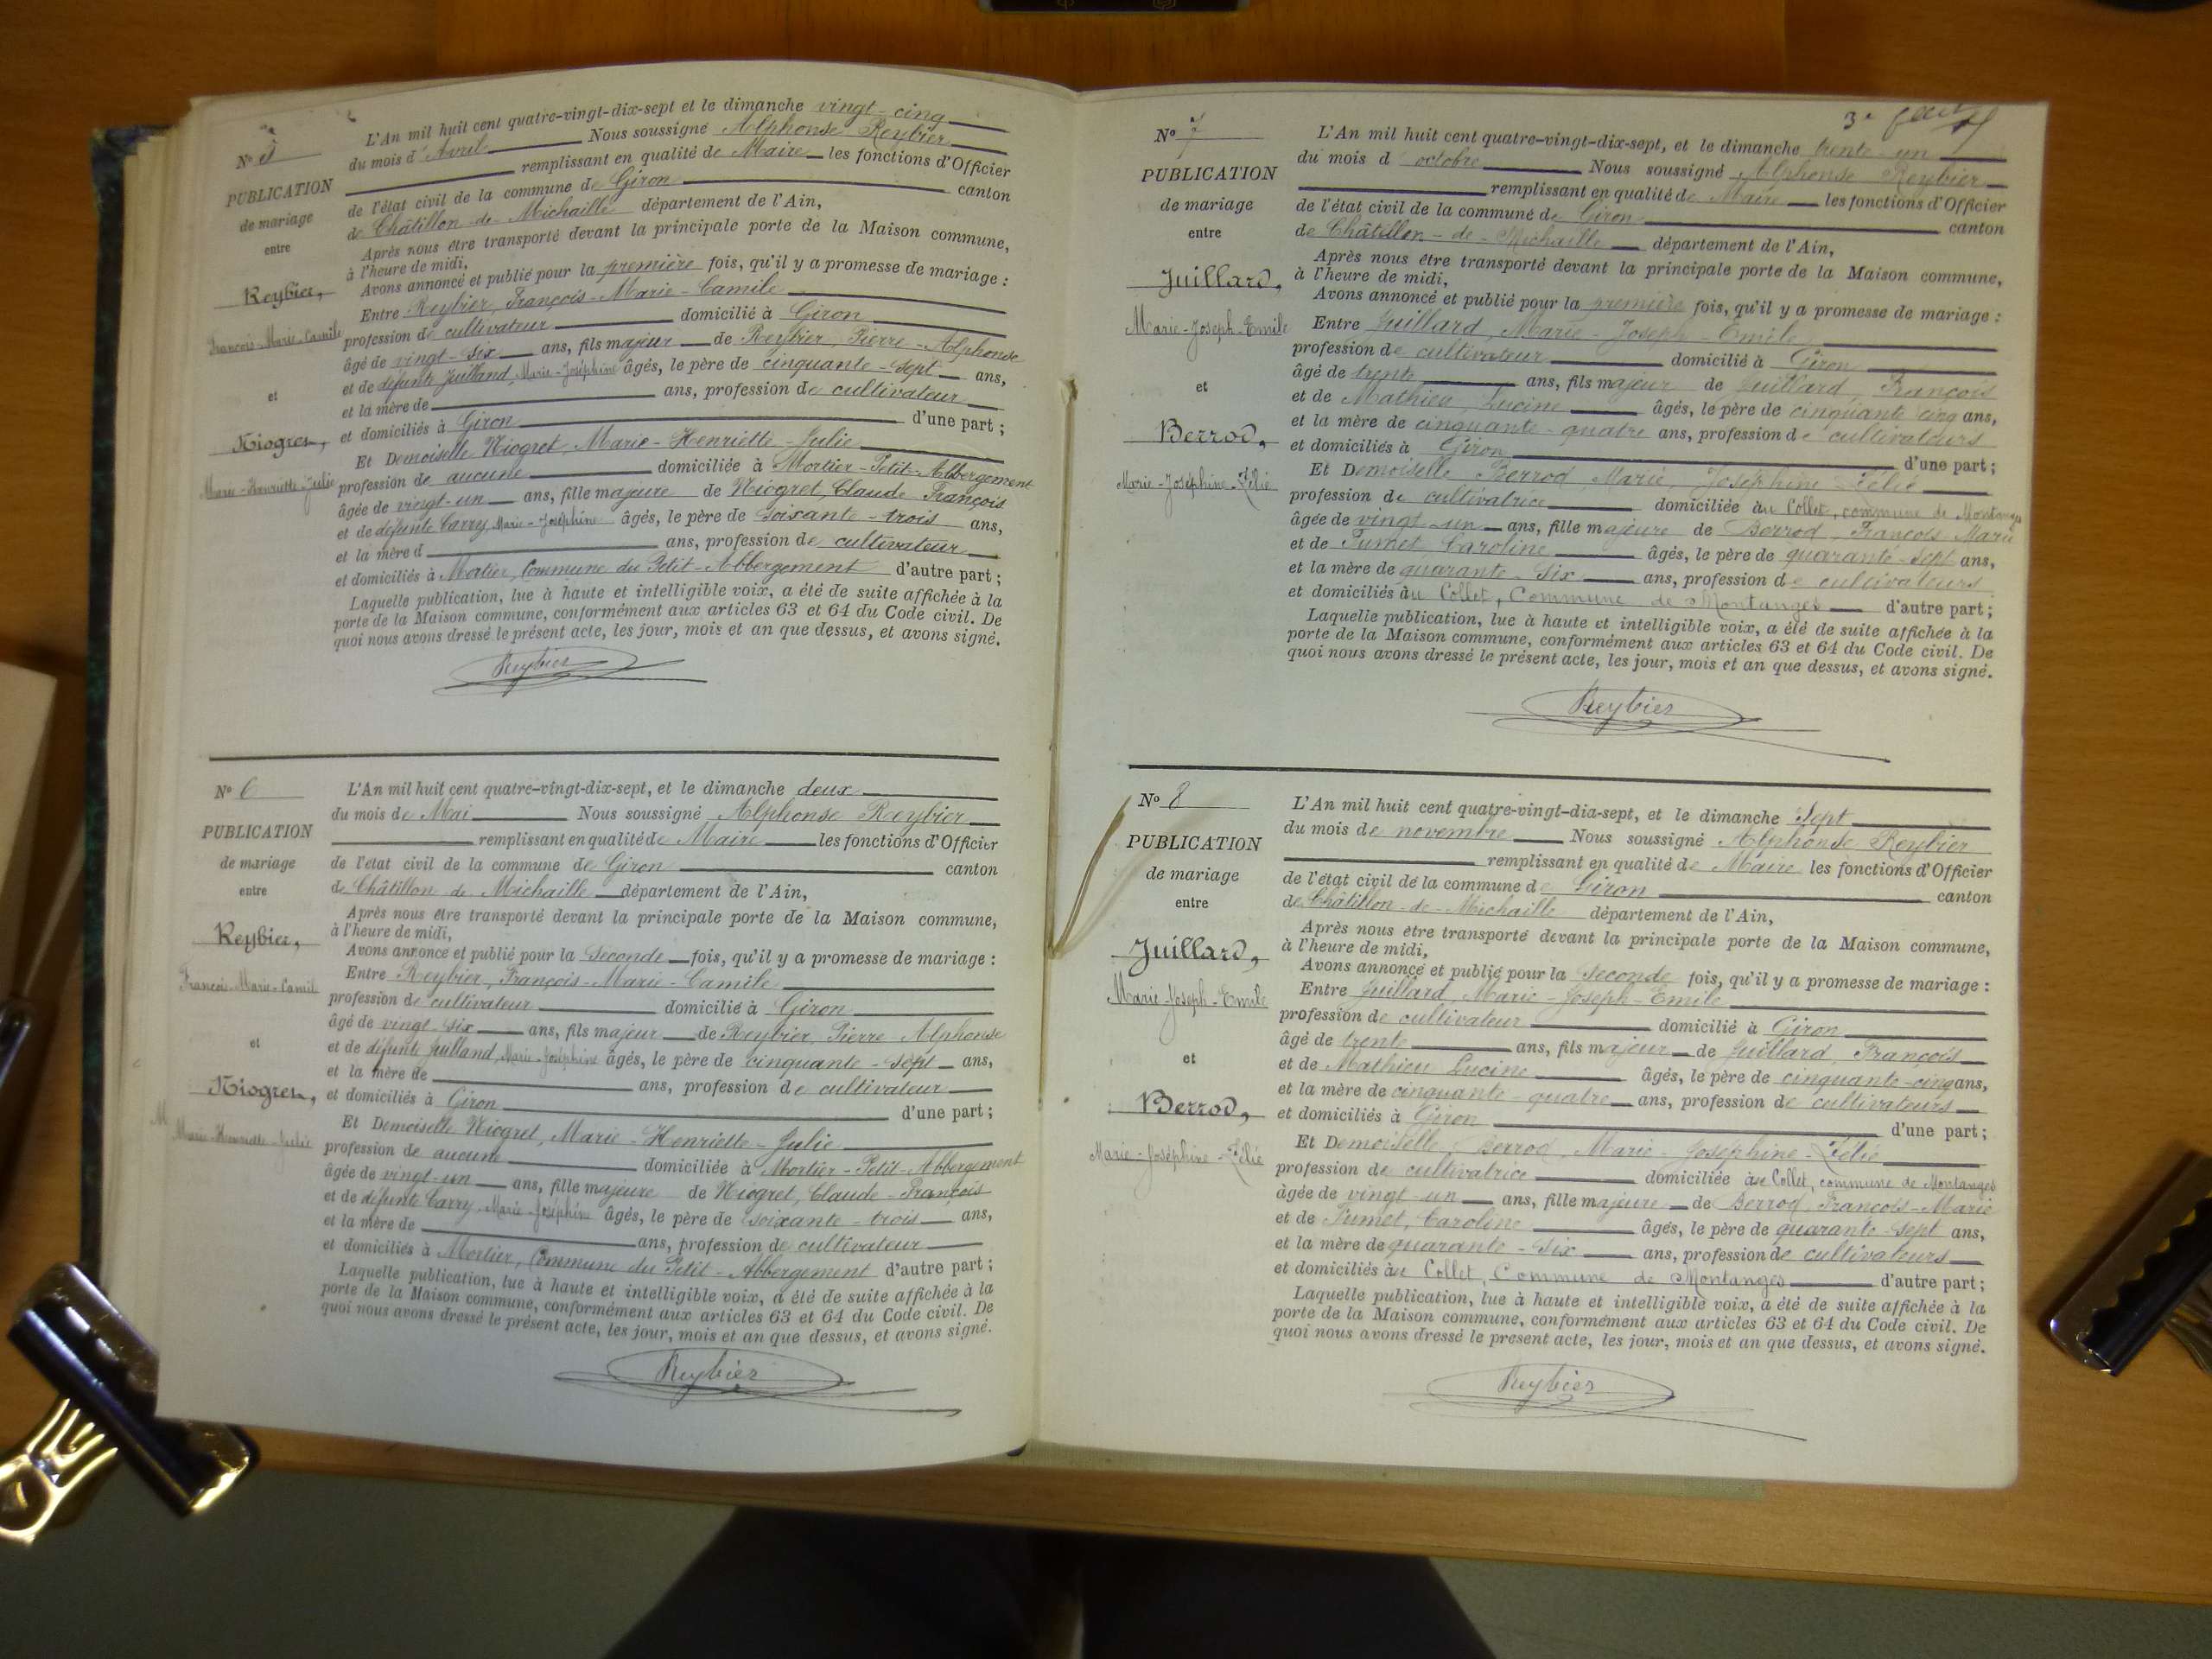 N° 5
PUBLICATION
de mariage
entre
Reybier,
François-Marie-Camile
et
Niogret,
Marie-Henriette-Julie
L'An mil huit cent quatre-vingt-dix-sept et le dimanche vingt-cinq
du mois d'Avril Nous soussigné Alphonse Reybier
remplissant en qualité de Maire les fonctions d'Officier
de l'état civil de la commune de Giron canton
de Châtillon-de-Michaille département de l'Ain,
Après nous être transporté devant la principale porte de la Maison commune,
à l'heure de midi,
Avons annoncé et publié pour la première fois, qu'il y a promesse de mariage :
Entre Reybier, François-Marie-Camile
profession de cultivateur domicilié à Giron
âgé de vingt-six ans, fils majeur de Reybier, Pierre-Alphonse
et de défunte Juilland, Marie-Joséphine âgés, le père de cinquante-sept ans,
et la mère de ans, profession de cultivateur
et domiciliés à Giron d'une part ;
Et Demoiselle Niogret, Marie-Henriette-Julie
profession de aucune domiciliée à Mortier-Petit-Abbergement
âgée de vingt-un ans, fille majeure de Niogret, Claude François
et de défunte Carry, Marie-Joséphine âgés, le père de soixante-trois ans,
et la mère d ans, profession de cultivateur
et domiciliés à Motier, Commune du Petit-Abbergement d'autre part ;
Laquelle publication, lue à haute et intelligible voix, a été de suite affichée à la
porte de la Maison commune, conformément aux articles 63 et 64 du Code civil. De
quoi nous avons dressé le présent acte, les jour, mois et an que dessus, et avons signé.
Reybier
N° 6
PUBLICATION
de mariage
entre
Reybier,
François-Marie-Camil
et
Niogret,
Marie-Henriette-Julie
L'An mil huit cent quatre-vingt-dix-sept, et le dimanche deux
du mois de Mai Nous soussigné Alphonse Reybier
remplissant en qualité de Maire les fonctions d'Officier
de l'état civil de la commune de Giron canton
de Châtillon de Michaille département de l'Ain,
Après nous être transporté devant la principale porte de la Maison commune,
à l'heure de midi,
Avons annoncé et publié pour la Seconde fois, qu'il y a promesse de mariage :
Entre Reybier, François-Marie-Camile
profession de cultivateur domicilié à Giron
âgé de vingt-six ans, fils majeur de Reybier, Pierre Alphonse
et de défunte Juilland, Marie-Joséphine âgés, le père de cinquante-sept ans,
et la mère de ans, profession de cultivateur
et domiciliés à Giron d'une part ;
Et Demoiselle Niogret, Marie-Henriette-Julie
profession de aucune domiciliée à Mortier-Petit-Abbergement
âgée de vingt-un ans, fille majeure de Niogret, Claude-François
et de défunte Carry, Marie-Joséphine âgés, le père de soixante-trois ans,
et la mère de ans, profession de cultivateur
et domiciliés à Mortier, Commune du Petit-Abbergement d'autre part ;
Laquelle publication, lue à haute et intelligible voix, a été de suite affichée à la
porte de la Maison commune, conformément aux articles 63 et 64 du Code civil. De
quoi nous avons dressé le présent acte, les jour, mois et an que dessus, et avons signé.
Reybier
3e
N° 7
PUBLICATION
de mariage
entre
Juillard,
Marie-Joseph-Emile
et
Berrod,
Marie-Joséphine-Zélie
L'An mil huit cent quatre-vingt-dix-sept, et le dimanche trente-un
du mois d octobre Nous soussigné Alphonse Reybier
remplissant en qualité de Maire les fonctions d'Officier
de l'état civil de la commune de Giron canton
de Châtillon-de-Michaille département de l'Ain,
Après nous être transporté devant la principale porte de la Maison commune,
à l'heure de midi,
Avons annoncé et publié pour la première fois, qu'il y a promesse de mariage :
Entre Juillard, Marie-Joseph-Emile
profession de cultivateur domicilié à Giron
âgé de trente ans, fils majeur de Juillard François
et de Mathieu Lucine âgés, le père de cinquante cinq ans,
et la mère de cinquante-quatre ans, profession de cultivateurs
et domiciliés à Giron d'une part ;
Et Demoiselle Berrod Marie, Joséphine Zélie
profession de cultivatrice domiciliée au Collet, commune de Montanges
âgée de vingt-un ans, fille majeure de Berrod, François-Marie
et de Fumet, Caroline âgés, le père de quarante-sept ans,
et la mère de quarante-six ans, profession de cultivateurs
et domiciliés au Collet, Commune de Montanges d'autre part ;
Laquelle publication, lue à haute et intelligible voix, a été de suite affichée à la
porte de la Maison commune, conformément aux articles 63 et 64 du Code civil. De
quoi nous avons dressé le présent acte, les jour, mois et an que dessus, et avons signé.
Reybier
N° 8
PUBLICATION
de mariage
entre
Juillard,
Marie-Joseph-Emile
et
Berrod,
Marie-Joséphine-Zélie
L'An mil huit cent quatre-vingt-dix-sept, et le dimanche Sept
du mois de novembre Nous soussigné Alphonse Reybier
remplissant en qualité de Maire les fonctions d'Officier
de l'état civil de la commune de Giron canton
de Châtillon-de-Michaille département de l'Ain,
Après nous être transporté devant la principale porte de la Maison commune,
à l'heure de midi,
Avons annoncé et publié pour la Seconde fois, qu'il y a promesse de mariage :
Entre Juillard, Marie-Joseph-Emile
profession de cultivateur domicilié à Giron
âgé de trente ans, fils majeur de Juillard, François
et de Mathieu Lucine âgés, le père de cinquante-cinq ans,
et la mère de cinquante-quatre ans, profession de cultivateurs
et domiciliés à Giron d'une part ;
Et Demoiselle, Berrod, Marie-Joséphine-Zélie
profession de cultivatrice domiciliée au Collet, commune de Montanges
âgée de vingt-un ans, fille majeure de Berrod François-Marie
et de Fumet, Caroline âgés, le père de quarante-sept ans,
et la mère de quarante-six ans, profession de cultivateurs
et domiciliés au Collet, Commune de Montanges d'autre part ;
Laquelle publication, lue à haute et intelligible voix, a été de suite affichée à la
porte de la Maison commune, conformément aux articles 63 et 64 du Code civil. De
quoi nous avons dressé le présent acte, les jour, mois et an que dessus, et avons signé.
Reybier